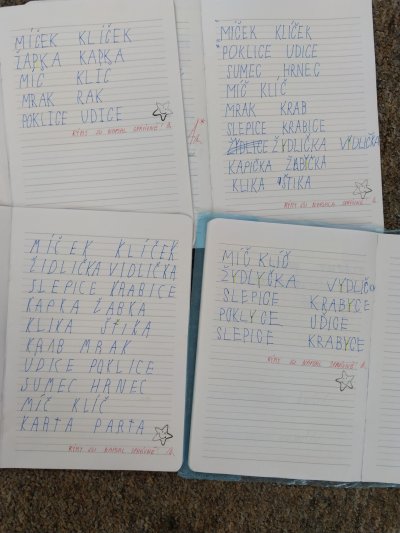 MÍČEK KLÍČEK
ŽÁPKA KAPKA
MÍČ KLÍČ
MRAK RAK
POKLICE UDICE
RÝMY JSI NAPSAL SPRÁVNĚ!
MÍČEK KLÍČEK
POKLICE UDICE
SUMEC HRNEC
MÍČ KLÍČ
MRAK KRAB
SLEPICE KRABICE
ŽYDLIČKA VYDLIČKA
KAPIČKA ŽABYČKA
KLIKA ŠTIKA
RÝMY JSI NAPSALA SPRÁVNĚ!
MÍČEK KLÍČEK
ŽIDLIČKA VIDLIČKA
SLEPICE KRABICE
KAPKA ŽABKA
KLIKA ŠTIKA
KRAB MRAK
UDICE POKLICE
SUMEC HRNEC
MÍČ KLÍČ
KARTA PARTA
RÝMY JSI NAPSAL SPRÁVNĚ!
MÍČ KLÍČ
ŽYDLYČKA VYDLIČ
SLEPICE KRABYCE
POKLYCE UDICE
SLEPICE KRABYCE
RÝMY JSI NAPSAL SPRÁVNĚ!